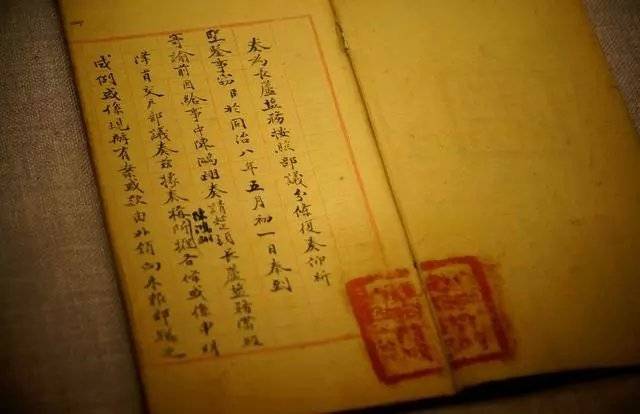 奏為長蘆盐務按照部議分條復奏仰祈
聖鑒事窃 於同治八年五月初一日奉到
寄諭前因給事中陳鴻翊奏請整頓長蘆盐務當經
降旨交戶部議奏茲據奏稱陳鴻翊所擬各條或係申明
成例或係現辦有案或款由外銷向未報部